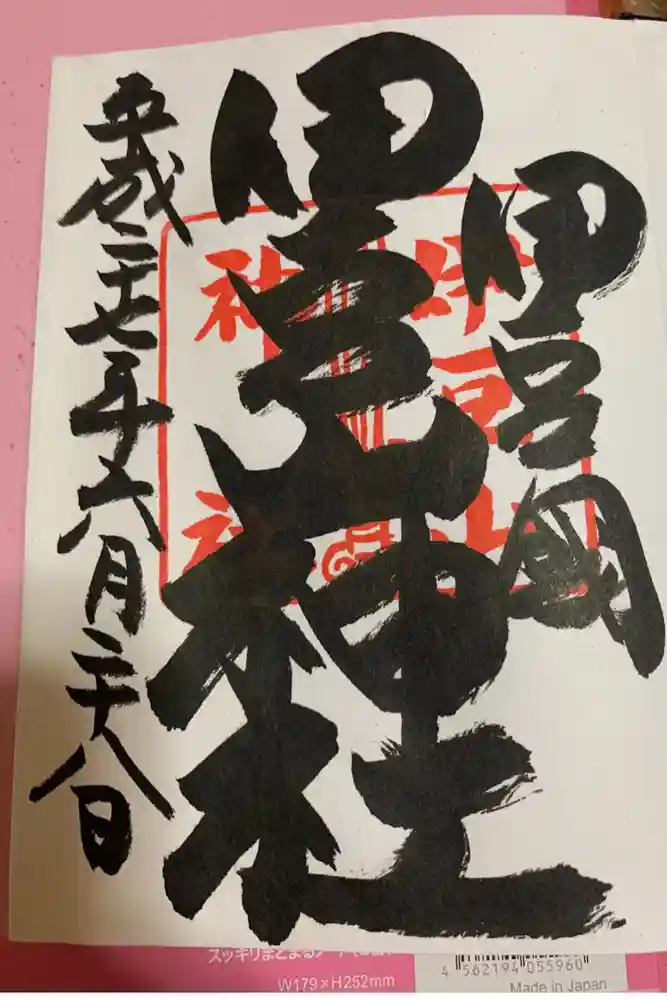 伊豆國
伊豆山神社
平成二十七年六月二十八日
伊豆山
神社
スッキリまとまる
W179×H252mm
4 562194 055960
Made in Japan